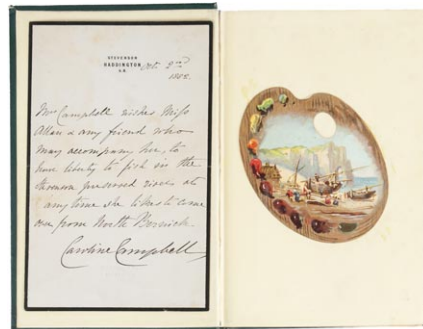 STEVENSON
HADDINGTON
N.B.
Oct. 2nd
1882.
Mrs Campbell wishes Miss
Allan & any friend who
may accompany her, to
have liberty to fish in the
preserved river at
any time she likes to come
over from North Berwick.
Caroline Campbell